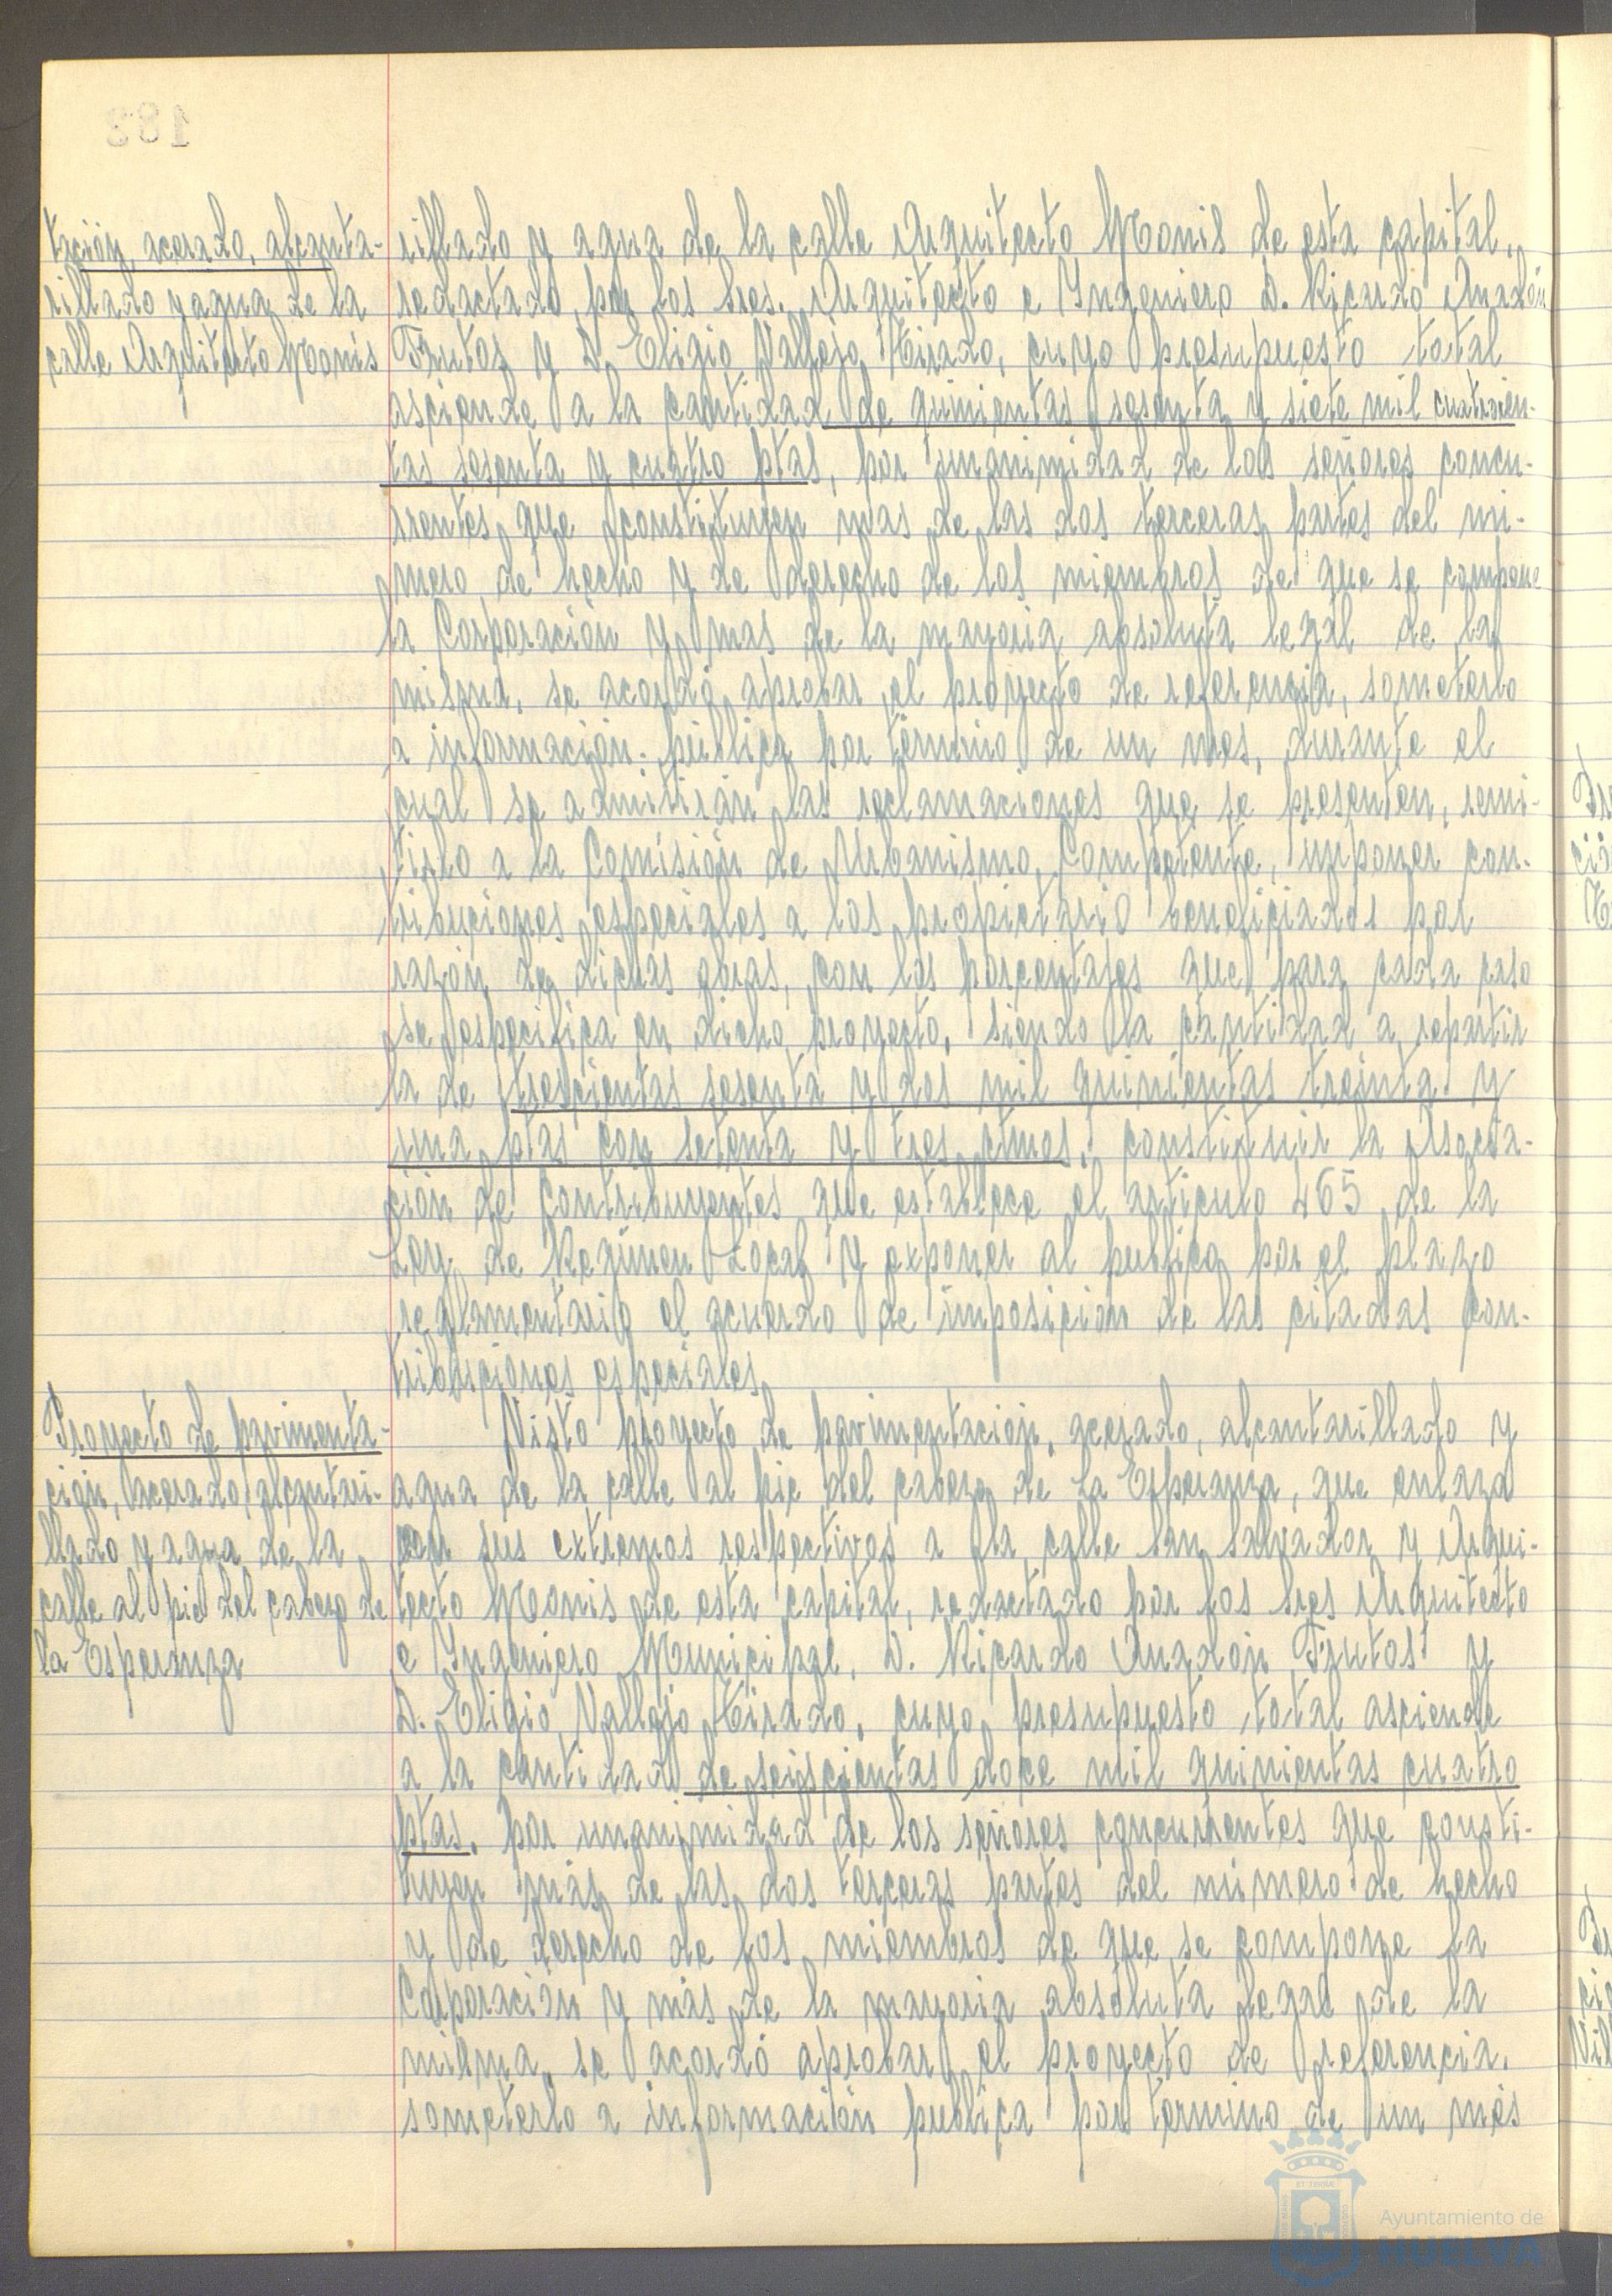 tación, acerado, alcanta-
rillado y agua de la
calle Arquitecto Monis
rillado y agua de la calle Arquitecto Monis de esta capital,
redactado por los Sres. Arquitecto e Ingeniero D. Ricardo Anadón
Frutos y D. Eligio Vallejo Tirado, cuyo presupuesto total
asciende a la cantidad de quinientas sesenta y siete mil cuatrocien-
tas sesenta y cuatro ptas, por unanimidad de los señores concu-
rrentes que constituyen mas de las dos terceras partes del nú-
mero de hecho y de derecho de los miembros de que se compone
la Corporación y mas de la mayoria absoluta legal de la
misma, se acordó aprobar el proyecto de referencia, someterlo
a información pública por término de un mes, durante el
cual se admitirán las reclamaciones que se presenten, remi-
tirlo a la Comisión de Urbanismo, Competente, imponer con-
tribuciones especiales a los propietario beneficiados por
razón de dichas obras, con los porcentajes que para cada caso
se especifica en dicho proyecto, siendo la cantidad a repartir
la de trescientas sesenta y dos mil quinientas treinta y
una ptas con setenta y tres ctmos, constituir la Asocia-
ción de Contribuyentes que establece el artículo 465 de la
Ley de Regimen Local y exponer al publico por el plazo
reglamentario el acuerdo de imposición de las citadas con-
tribuciones especiales
Proyecto de pavimenta-
ción, acerado, alcantari-
llado y agua de la
calle al pie del cabezo de
la Esperanza
Visto proyecto de pavimentación, acerado, alcantarillado y
agua de la calle al pie del cabezo de La Esperanza, que enlaza
con sus extremos respectivos a la calle San Salvador y Arqui-
tecto Monis de esta capital, redactado por los Sres Arquitecto
e Ingeniero Municipal, D. Ricardo Anadón Frutos y
D. Eligio Vallejo Tirado, cuyo presupuesto total asciende
a la cantidad de seiscientas doce mil quinientas cuatro
ptas, por unanimidad de los señores concurrentes que consti-
tuyen más de las dos terceras partes del número de hecho
y de derecho de los miembros de que se compone la
Corporación y más de la mayoria absoluta legal de la
misma, se acordó aprobar el proyecto de referencia,
someterlo a información publica por termino de un més
Ayuntamiento de
HUELVA